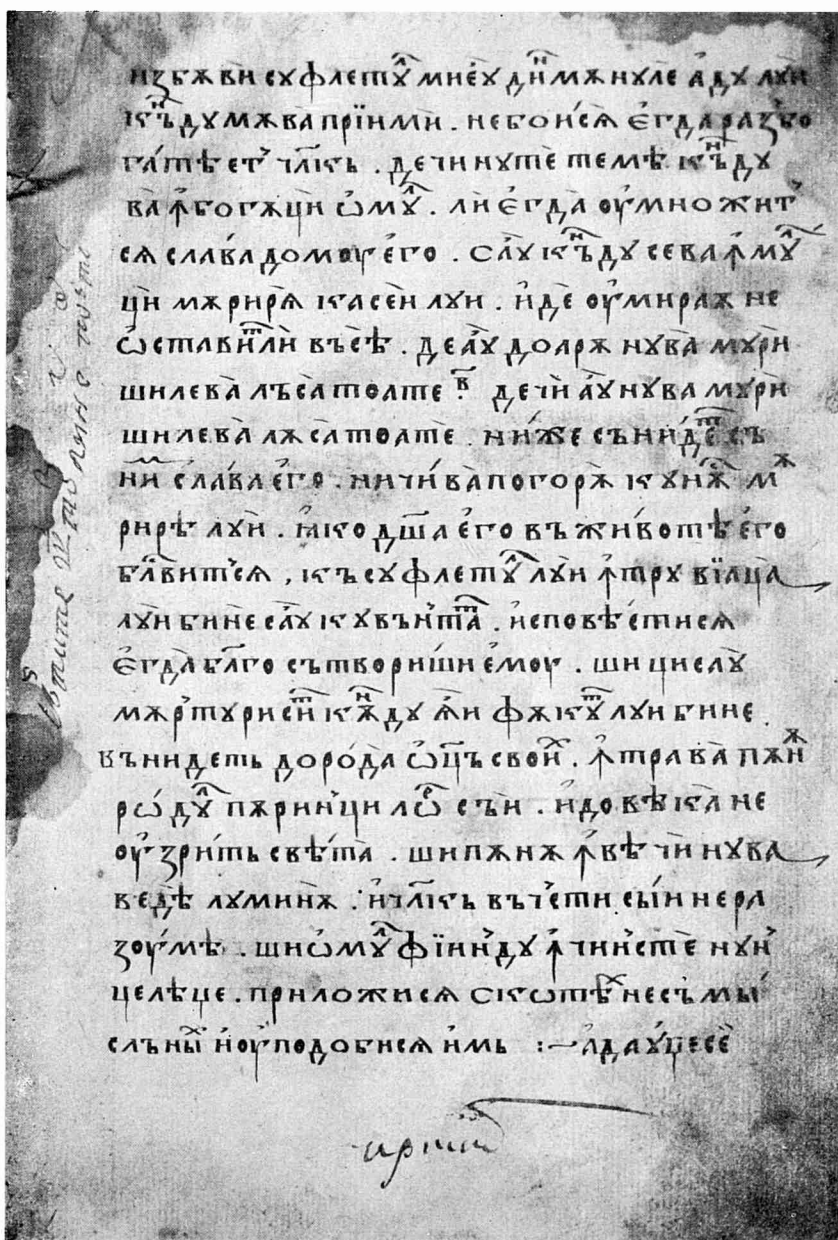 избѫви суфлетꙋⷧ҇ мїеꙋ диⷩ҇ мѫнуле адꙋ луи
кѫⷩ҇дꙋ мѫва прїими . небоисѧ егда разбо
гатѣет чл҃кь . дечи нуте теме кѫⷩ҇дꙋ
ва ꙟбогѫци ѡмꙋⷧ҇ . ли егда оумножит
сѧ слава домоу его . сау кѫⷩ҇дꙋ се ва ꙟмꙋⷧ҇
ци мѫрирѧ касеи луи . иде оумираѫ не
ѡставиⷮ ли въсѣ . де ау доарѫ нува мури
ши лева лъса тоате в҃ дечи ау нува мури
ши лева лѫса тоате . ниже сънидеⷮ съ
ни слава его . ничи ва погорѫ ку нѫⷭ҇ мѫ
рирѣ луи . ꙗко дш҃а его въ животѣ его
бл҃витсѧ , къ суфлетꙋⷧ҇ луи ꙟтру вїаца
луи бине сау кувъⷩ҇таⷮ . исповѣстисѧ
егда бл҃го сътвориши емоу . ши циє сау
мѫртурисиⷮ кѫⷩ҇дꙋ ѧи фѫкуⷮ луи бине
вънидеть до рода ѡц҃ъ своиⷯ . ꙟтра ва пѫнѫ
рѡдꙋⷧ҇ пѫринци лѡⷬ҇ съи . и до вѣка не
оузрить свѣта . ши пѫнѫ ꙟ вѣчи нува
ведѣ луминѫ . и чл҃кь въ чести сыи не ра
зоумѣ . ши ѡмꙋⷧ҇ фїинду ꙟ чинсте нун
целѣце . приложисѧ скотѣⷯ несъмы
слъныⷯ и оуподобисѧ имь :~ адауцесе